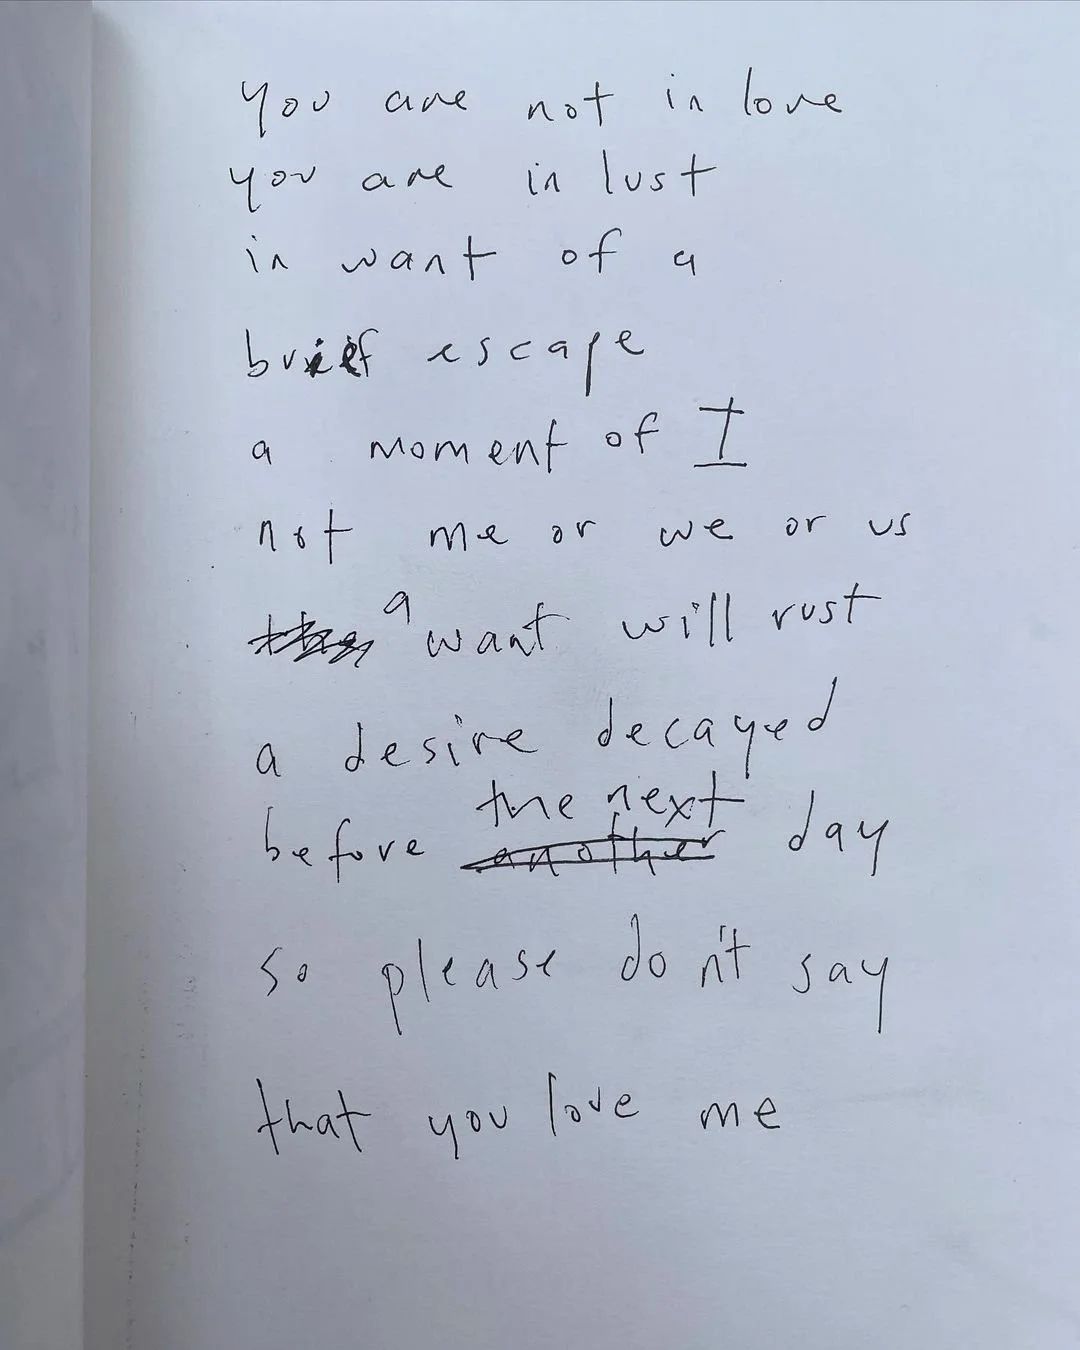 you are not in love
you are in lust
in want of a
brief escape
a moment of I
not me or we or us
a want will rust
a desire decayed
before the next day
so please don't say
that you love me